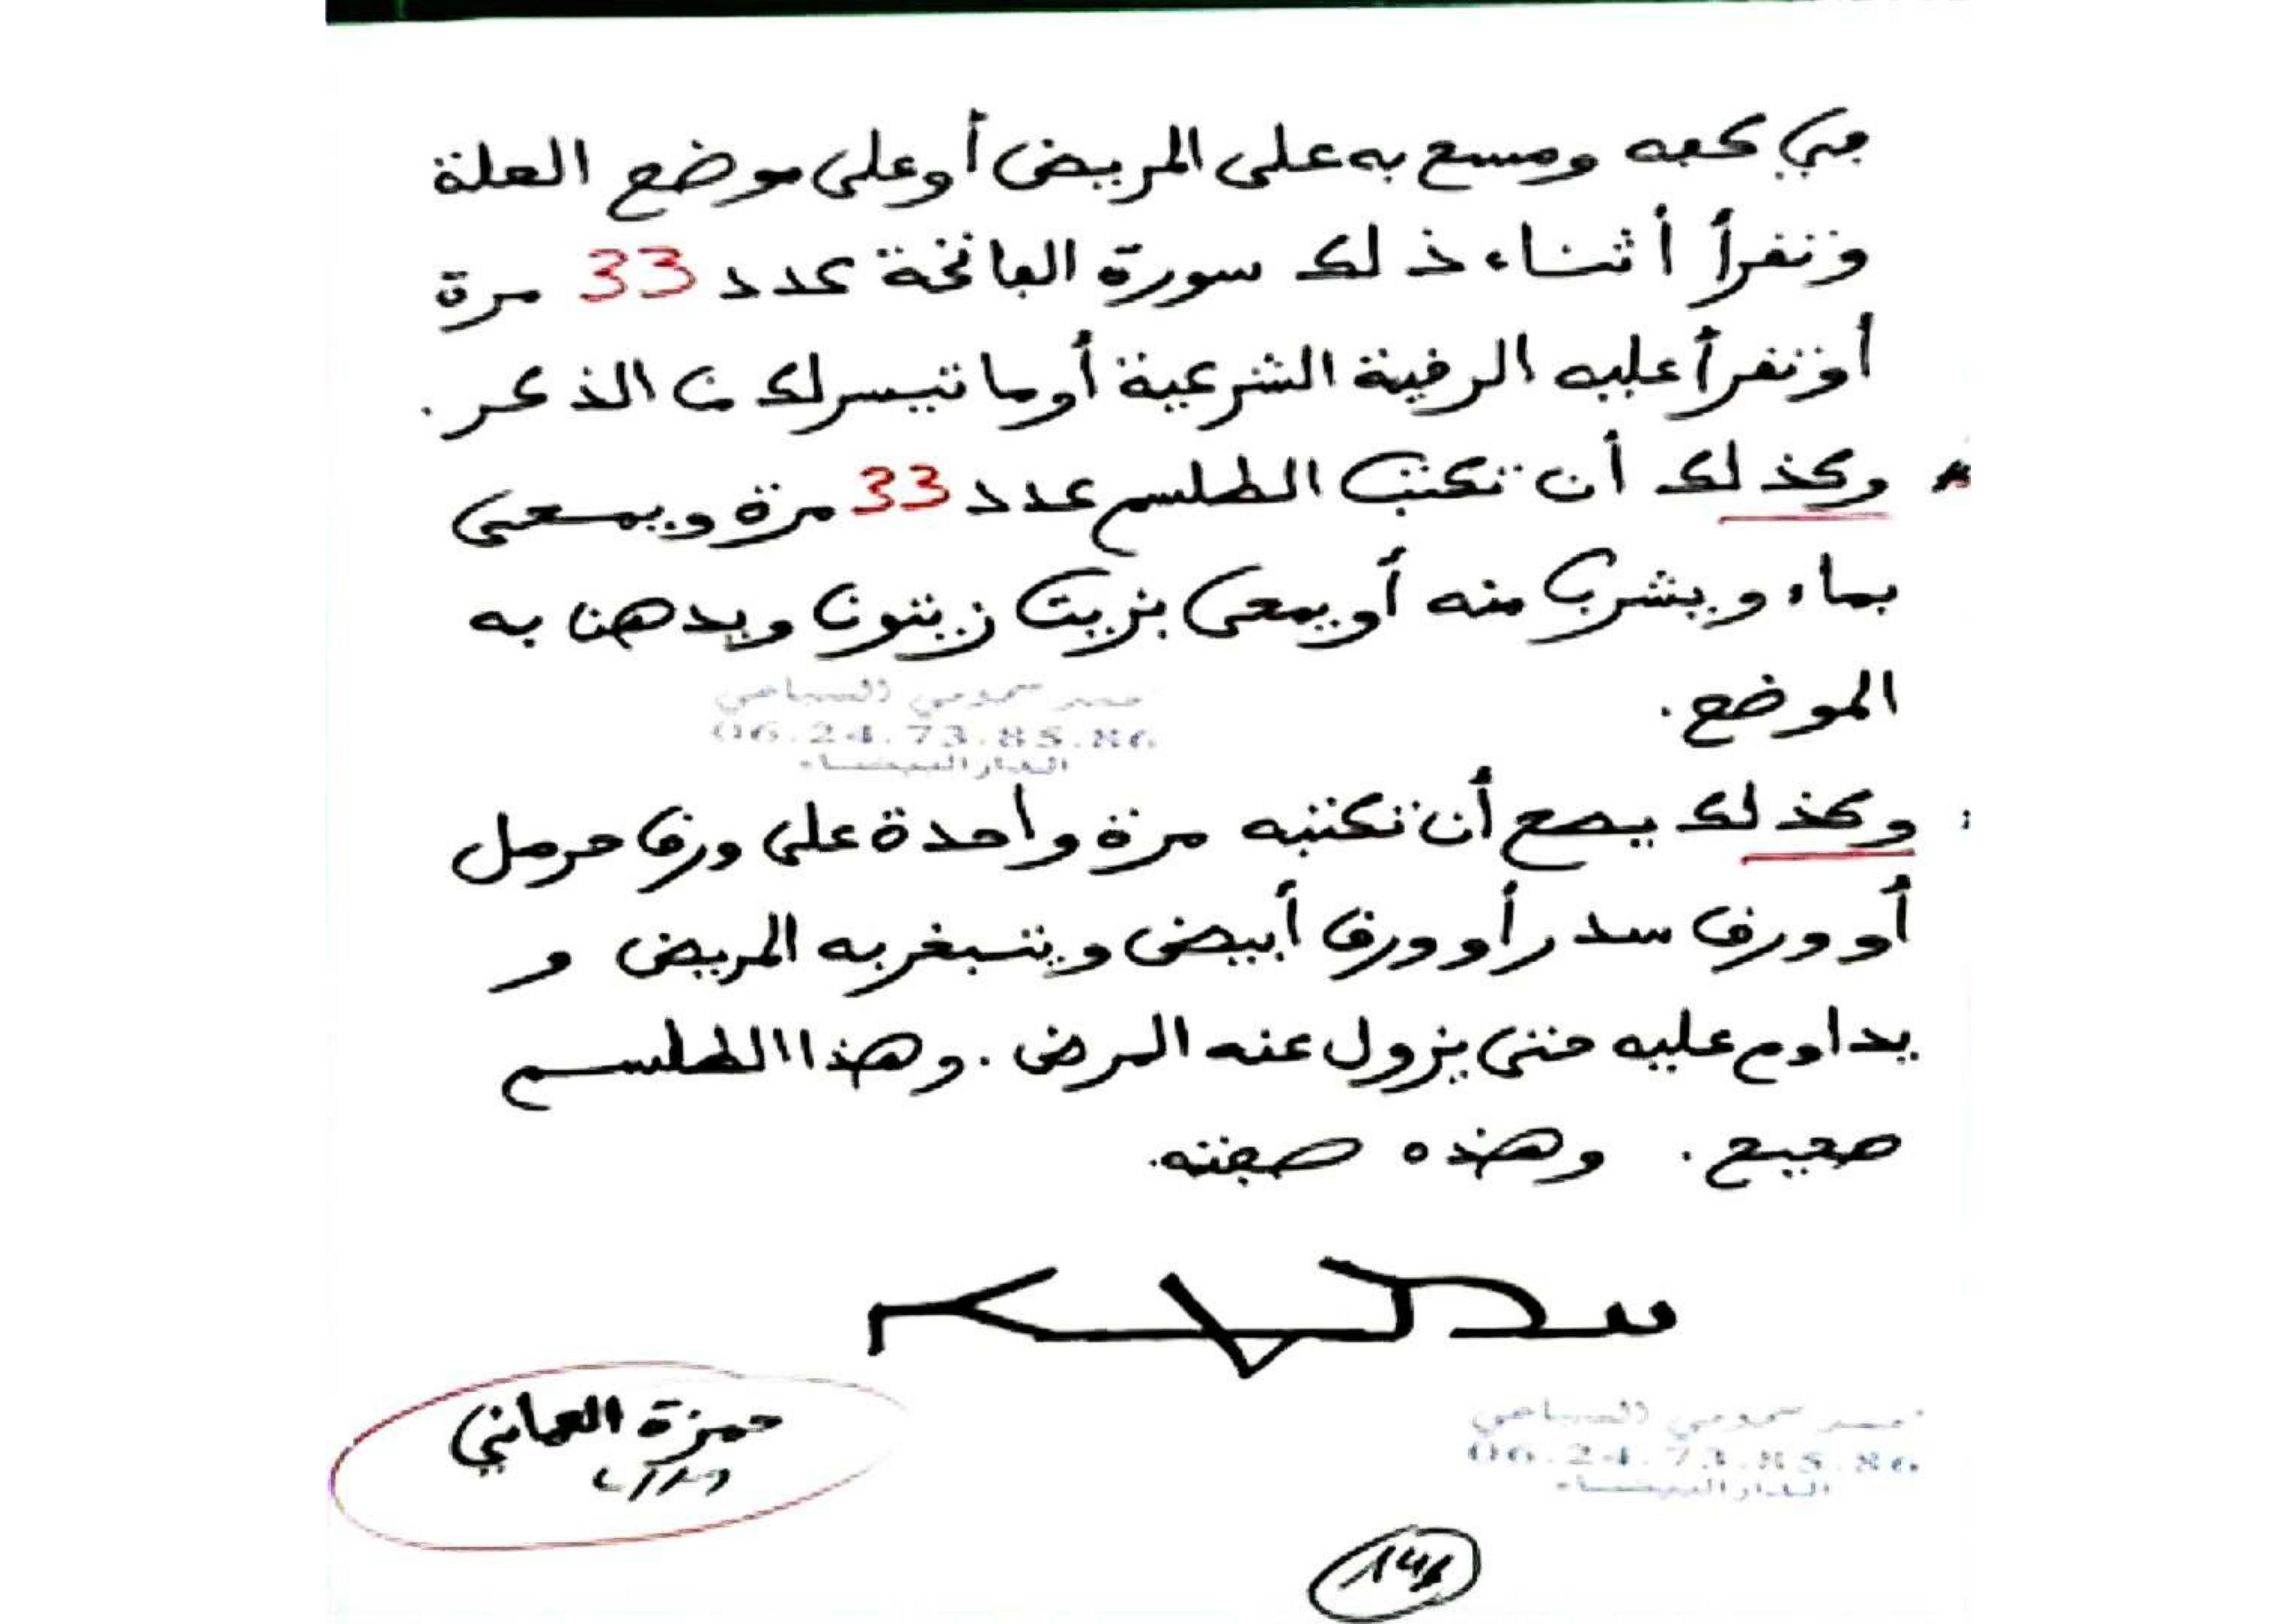 في كفه ومسح به على المريض أو على موضع العلة
وتقرأ أثناء ذلك سورة الفاتحة عدد 33 مرة
أو تقرأ عليه الرقية الشرعية أو ما تيسر لك من الذكر.
* وكذلك أن تكتب الطلسم عدد 33 مرة ويمحى
بماء ويشرب منه أو يمحى بزيت زيتون ويدهن به
الموضع.
06.24.73.85.86
الدار البيضاء
: وكذلك يصح أن تكتبه مرة واحدة على ورق حرمل
أو ورق سدر أو ورق أبيض ويتبخر به المريض و
يداوم عليه حتى يزول عنه المرض. وهذا الطلسم
صحيح. وهذه صفته.
حمزة العماني
06.24.73.85.86
الدار البيضاء